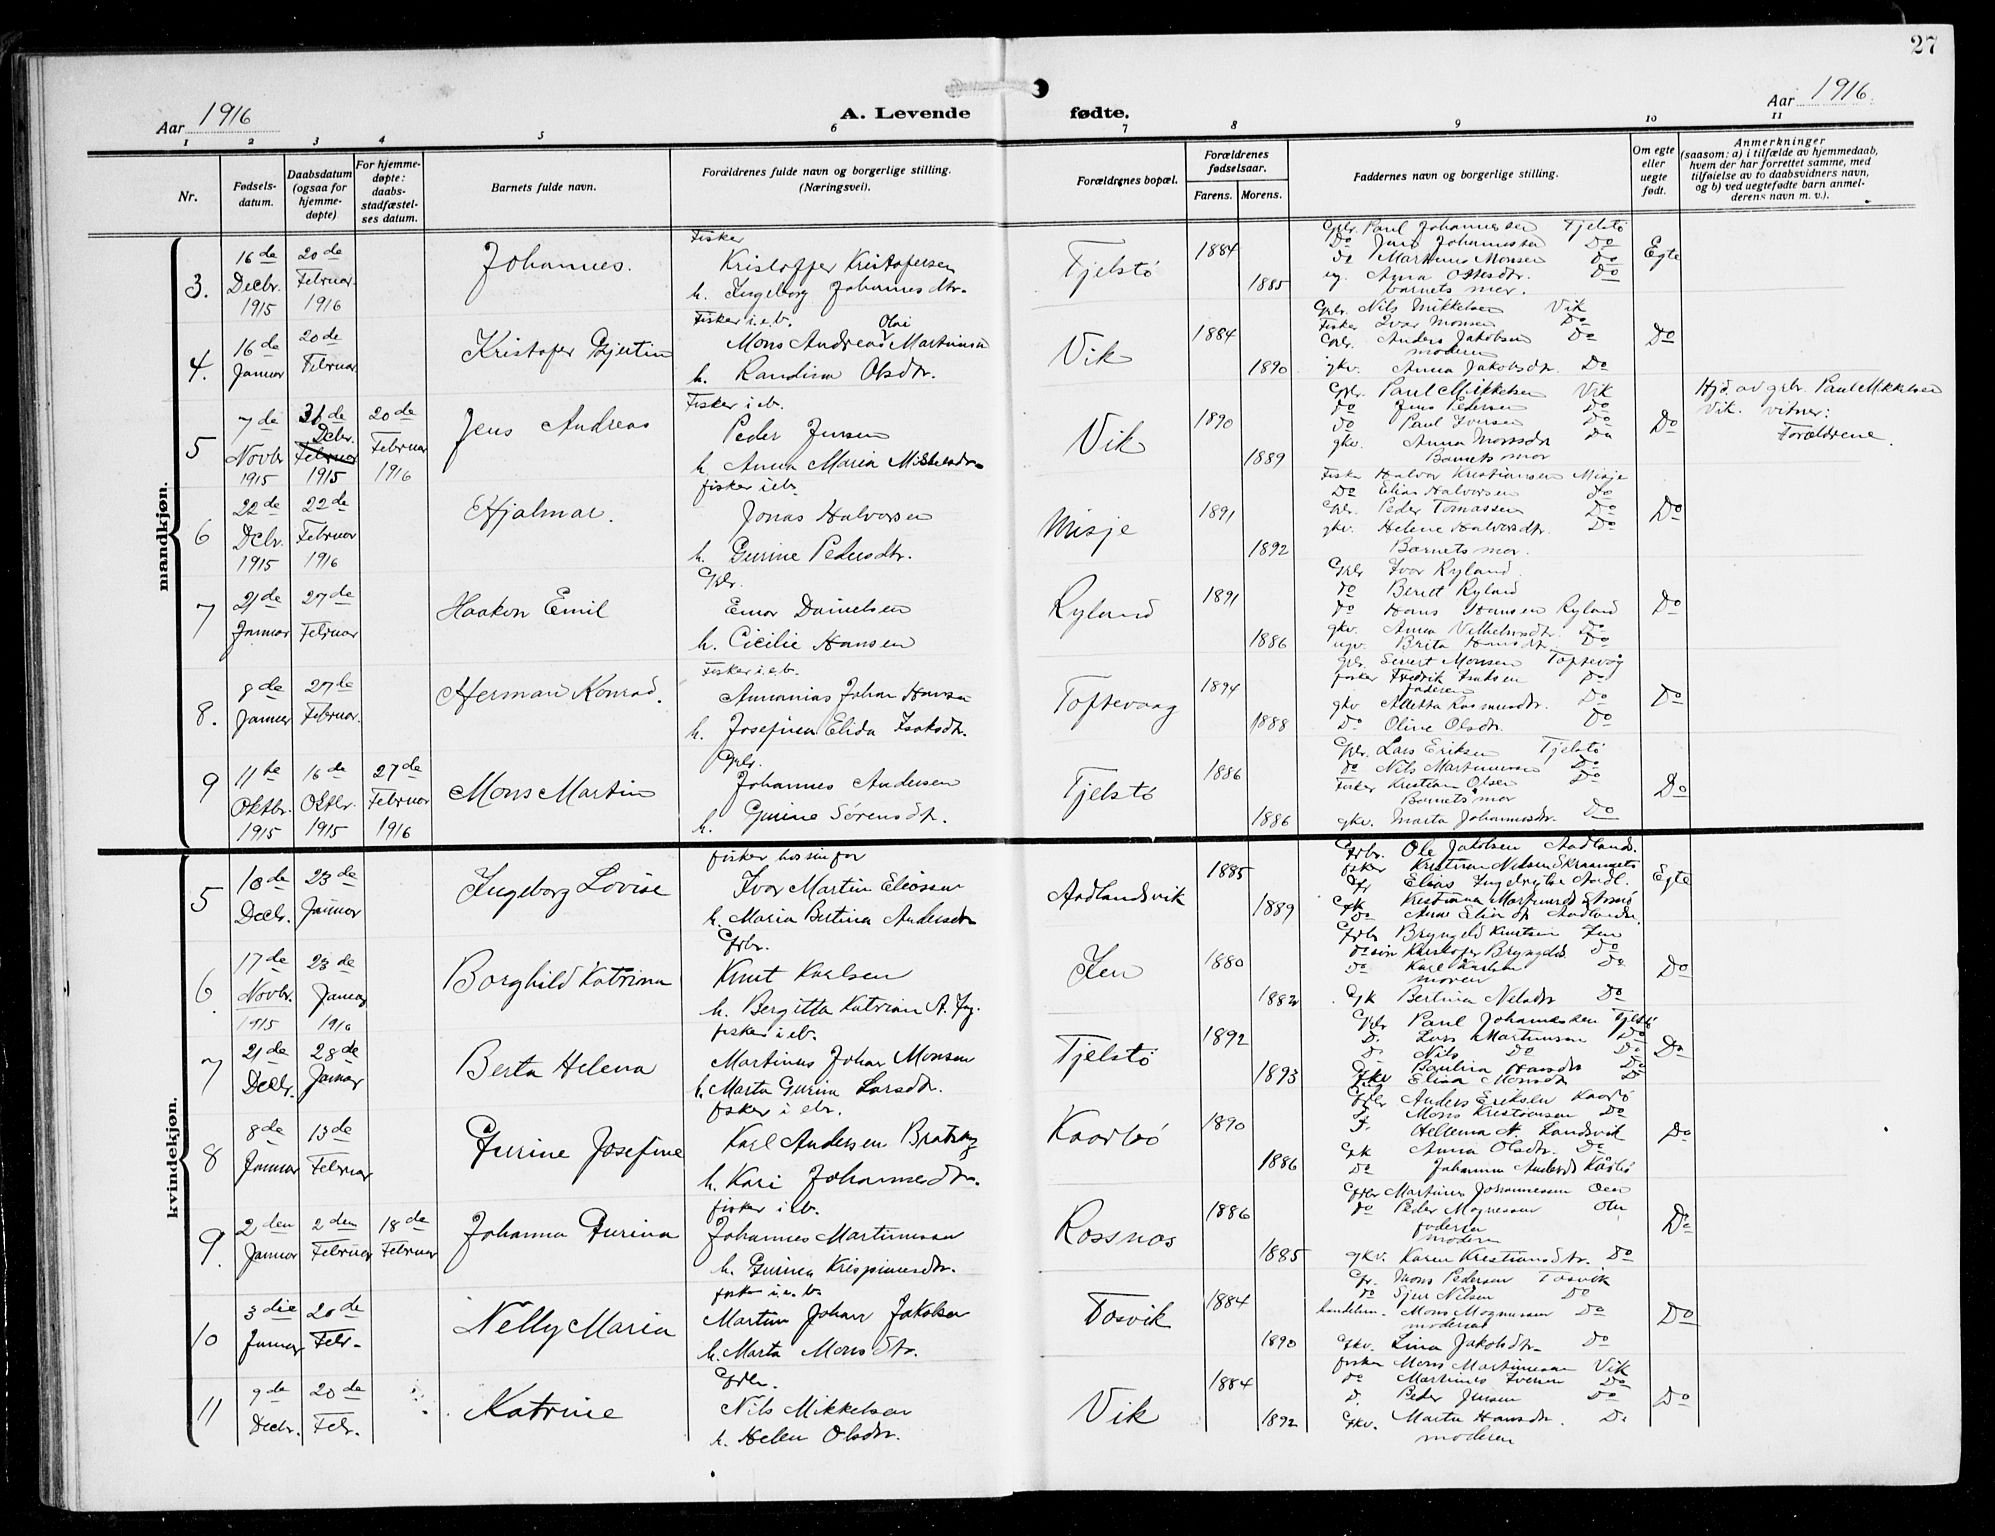 27
Aar 1916
A. Levende fødte.
Aar 1916.
1 2 3 4 5 6 7 8 9 10 11
Nr.
Fødsels-
datum.
Daabsdatum
(ogsaa for
hjemme-
døpte)
For hjemme-
døpte:
daabs-
stadfæstel-
ses datum.
Barnets fulde navn.
Forældrenes fulde navn og borgerlige stilling.
(Næringsvei).
Forældrenes bopæl.
Forældrenes
fødselsaar.
Farens. Morens.
Faddernes navn og borgerlige stilling.
Om egte
eller
uegte
født.
Anmerkninger
(saasom: a) i tilfælde av hjemmedaab,
hvem der har forrettet samme, med
tilføielse av to daabsvidners navn,
og b) ved uegtefødte barn anmel-
derens navn m. v.).
mandkjøn.
3.
16de
Decbr.
1915
20de
Februar
1916
Johannes.
Fisker
Kristoffer Kristofersen
h. Ingeborg Johannesdtr.
Tjelstø
1884
1885
Gbr. Paul Johannessen Tjelstø
Do Jens Johannessen Do
do Martinus Monsen Do
ug. Anna Ottesdtr. Do
barnets mor.
Egte
4.
16de
Januar
20de
Februar
Kristofer Gjertin
Fisker i.e.b.
Olai
Mons Andreas Martinsen
h. Randina Olsdtr.
Vik
1884
1890
Gbr. Nils Mikkelsen Vik
Fisker Ivar Monsen Do
Gbr. Anders Jakobsen Do
moderen
gkv. Anna Jakobsdtr. Do
Do
5
7de
Novbr
1915
31de
Dcbr.
Februar
1915
20de
Februar
1916
Jens Andreas
Fisker i eb.
Peder Jensen
h. Anna Maria Mikkelsdtr.
Vik
1890
1889
Gbr. Paul Mikkelsen Vik
do Jens Pedersen Do
do Paul Iversen Do
gkv. Anna Monsdtr Do
Barnets mor
Do
Hjd. av grbr. Paul Mikkelsen
Vik. vitner:
Forældrene.
6
22de
Dcbr.
1915
22de
Februar
1916
Hjalmar.
fisker i eb.
Jonas Halvorsen
h. Gurine Pedersdtr.
Misje
1891
1892
Fisker Halvor Kristiansen Misje
Do Elias Halvorsen Do
Gbr. Peder Tomassen Do
gkv. Helene Halvorsdtr. Do
Barnets mor.
Do
7
21de
Januar
27de
Februar
Haakon Emil
Gbr.
Einar Danielsen
h. Cicilie Hansen
Ryland
1891
1886
Gbr Ivar Ryland
do Berret Ryland
do Hans Hansen Ryland
gkv. Anna Vilhelmsdtr. Do
ugv. Brita Hansdtr. Do
Do
8.
8de
Januar
27de
Februar
Herman Konrad.
Fisker i e.b.
Annanias Johan Hansen
h. Josefina Elida Isaksdtr.
Toftevaag
1894
1888
Gbr. Sivert Monsen Toftevåg
fisker Fredrik Isaksen Do
faderen
gkv Aletta Rasmusdtr. Do
Do Oline Olsdtr. Do
Do
9
11te
Oktbr.
1915
16de
Oktbr.
1915
27de
Februar
1916
Mons Martin
Gbr.
Johannes Andersen
h. Gurine Sørensdtr.
Tjelstø
1886
1886
Gbr. Lars Eriksen Tjelstø
do Nils Martinussen Do
Fisker Kristian Olsen Do
Barnets mor
gkv. Marta Johannesdtr. Do
Do
kvindekjøn.
5
10de
Decbr.
23de
Januar
Ingeborg Lovise
fisker hos sin far
Ivar Martin Eliassen
h. Maria Bertina Andersdtr
Aadlandsvik
1885
1889
Grbr. Ole Jakobsen Aadland.
fisker Kristian Nilsen
Elias
Egte
6
17de
Novbr.
1915
23de
Januar
1916
Borghild Katrina
Grbr.
Knut Karlsen
h. Bergitta Katrian A. Ing.
Ien
1880
1882
Grbr Bryngeld Knutsen Ien
do søn Kristofer Bryngelds. Do
Do Karl Karlsen Do
moren
Gk Bertina Nilsdtr Do
Do
7
21de
Decbr.
28de
Januar
Berta Helena
fisker i eb.
Martinus Johan Monsen
h. Marta Gurina Larsdtr.
Tjelstø
1892
1893
Gbr Paul Johannessen Tjelstø
D. Lars Martinsen Do
D. Nils Do Do
Paulina Hansdtr Do
Gkv Elisa Monsdtr Do
Do
8
8de
Januar
13de
Februar
Gurine Josefine
fisker i ebr.
Karl Andersen Bratseg
h. Kari Johannesdtr.
Kaarbø
1890
1886
Grbr Anders Eriksen Kaarbø
D. Mons Kristiansen Do
F. Hellema N. Landsvik
Gk Anna Olsdtr. Do
Do Johanna Andersd. Kårbø
Do
9.
2den
Januar
2den
Februar
18de
Februar
Johanna Gurina
fisker i eb.
Johannes Martinussen
h. Gurina Krispinusdtr.
Rossnos
1886
1885
Grbr Martinus Johannessen Oen
do Peder Magnessen Oen
faderen
moderen
gkv. Karen Kristiansdtr. Do
Do
10
3die
Januar
20de
Febr.
Nelly Maria
fisker i.e.b.
Martin Johan Jakobsen
h. Marta Monsdtr.
Tosvik
1884
1890
Gr. Mons Pedersen Tosvik
Do Sjur Nilsen Do
handelsm. Mons Magnussen Do
moderen
Gkv. Lina Jakobsdtr. Do
Do
11
9de
Decbr.
20de
Febr.
Katrine
Grbr.
Nils Mikkelsen
h. Helen Olsdtr.
Vik
1884
1892
fisker Mons Martinussen Vik
do Martinus Iversen Do
D. Peder Jensen Do
Gkv. Marta Hansdtr. Do
moderen
Do